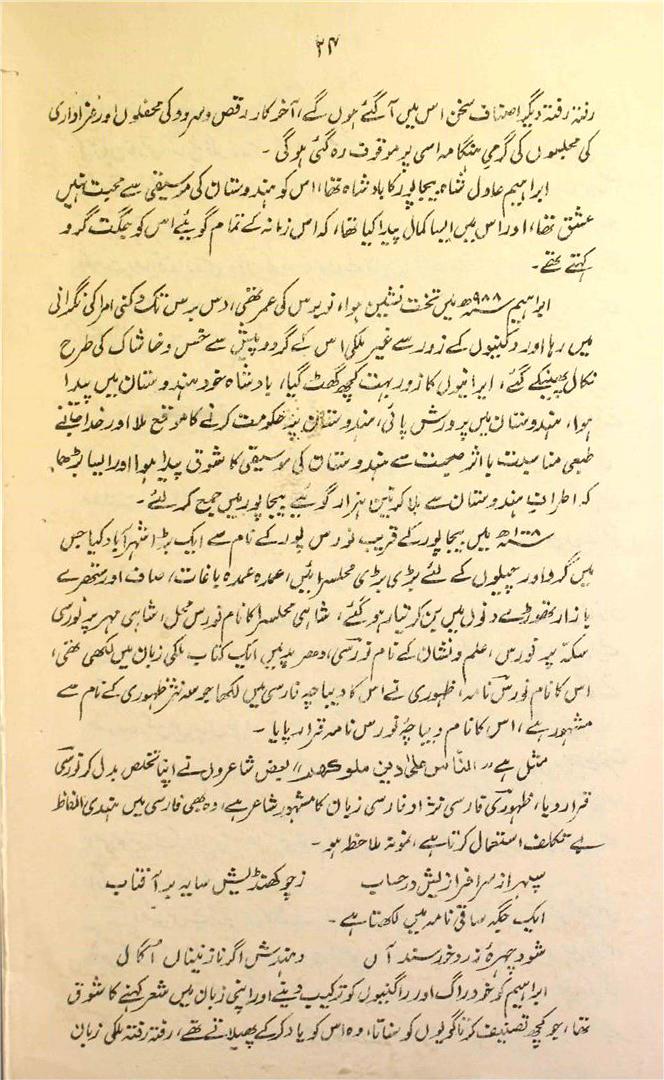 ۲۴
رفتہ رفتہ دیگر اصنافِ سخن اس میں آگئے ہوں گے، آخر کار رقص و سرود کی محفلوں اور عزاداری
کی مجلسوں کی گرمیِ ہنگامہ اسی پر موقوف رہ گئی ہوگی۔
ابراہیم عادل شاہ بیجاپور کا بادشاہ تھا، اس کو ہندوستان کی موسیقی سے محبت نہیں
عشق تھا، اور اس میں ایسا کمال پیدا کیا تھا، کہ اس زمانہ کے تمام گویئے اس کو جگت گرو
کہتے تھے۔
ابراہیم ۹۸۸ھ میں تخت نشین ہوا، نو برس کی عمر تھی، دس برس تک دکنی امرا کی نگرانی
میں رہا اور دکنیوں کے زور سے غیر ملکی اس کے گرد و پیش سے خس و خاشاک کی طرح
نکال پھینکے گئے، ایرانیوں کا زور بہت کچھ گھٹ گیا، بادشاہ خود ہندوستان میں پیدا
ہوا، ہندوستان میں پرورش پائی، ہندوستان پر حکومت کرنے کا موقع ملا اور خدا جانے
طبعی مناسبت یا اثر صحبت سے ہندوستان کی موسیقی کا شوق پیدا ہوا اور ایسا بڑھا،
کہ اطرافِ ہندوستان سے بلا کر تین ہزار گویئے بیجاپور میں جمع کر لئے۔
۱۰۰۸ھ میں بیجاپور کے قریب نورس پور کے نام سے ایک بڑا شہر آباد کیا جس
میں گرو اور چیلوں کے لئے بڑی بڑی محلسرائیں، عمدہ عمدہ باغات، صاف اور ستھرے
بازار تھوڑے دنوں میں بن کر تیار ہو گئے، شاہی محلسرا کا نام نورس محل، شاہی مہر پر نورسی
سکہ پر نورس، علم و نشان کے نام نورسی، دھرپد میں ایک کتاب ملکی زبان میں لکھی تھی،
اس کا نام نورس نامہ، ظہوری نے اس کا دیباچہ فارسی میں لکھا جو سہ نثر ظہوری کے نام سے
مشہور ہے، اس کا نام دیباچۂ نورس نامہ قرار پایا۔
مثل ہے "الناس علیٰ دین ملوکھم" بعض شاعروں نے اپنا تخلص بدل کر نورسی
قرار دیا، ظہوری فارسی نژاد فارسی زبان کا مشہور شاعر ہے، وہ بھی فارسی میں ہندی الفاظ
بے تکلف استعمال کرتا ہے، نمونہ ملاحظہ ہو۔
سپہر از سرافرازیش در حساب زچوکھنڈیش سایہ بر آفتاب
ایک جگہ ساقی نامہ میں لکھتا ہے۔
شود چہرۂ زرد خورسند آں دہندش اگر نازنیناں اگال
ابراہیم کو خود راگ اور راگنیوں کو ترکیب دینے اور اپنی زبان میں شعر کہنے کا شوق
تھا، جو کچھ تصنیف کرتا گویوں کو سناتا، وہ اس کو یاد کر کے پھیلاتے تھے، رفتہ رفتہ ملکی زبان